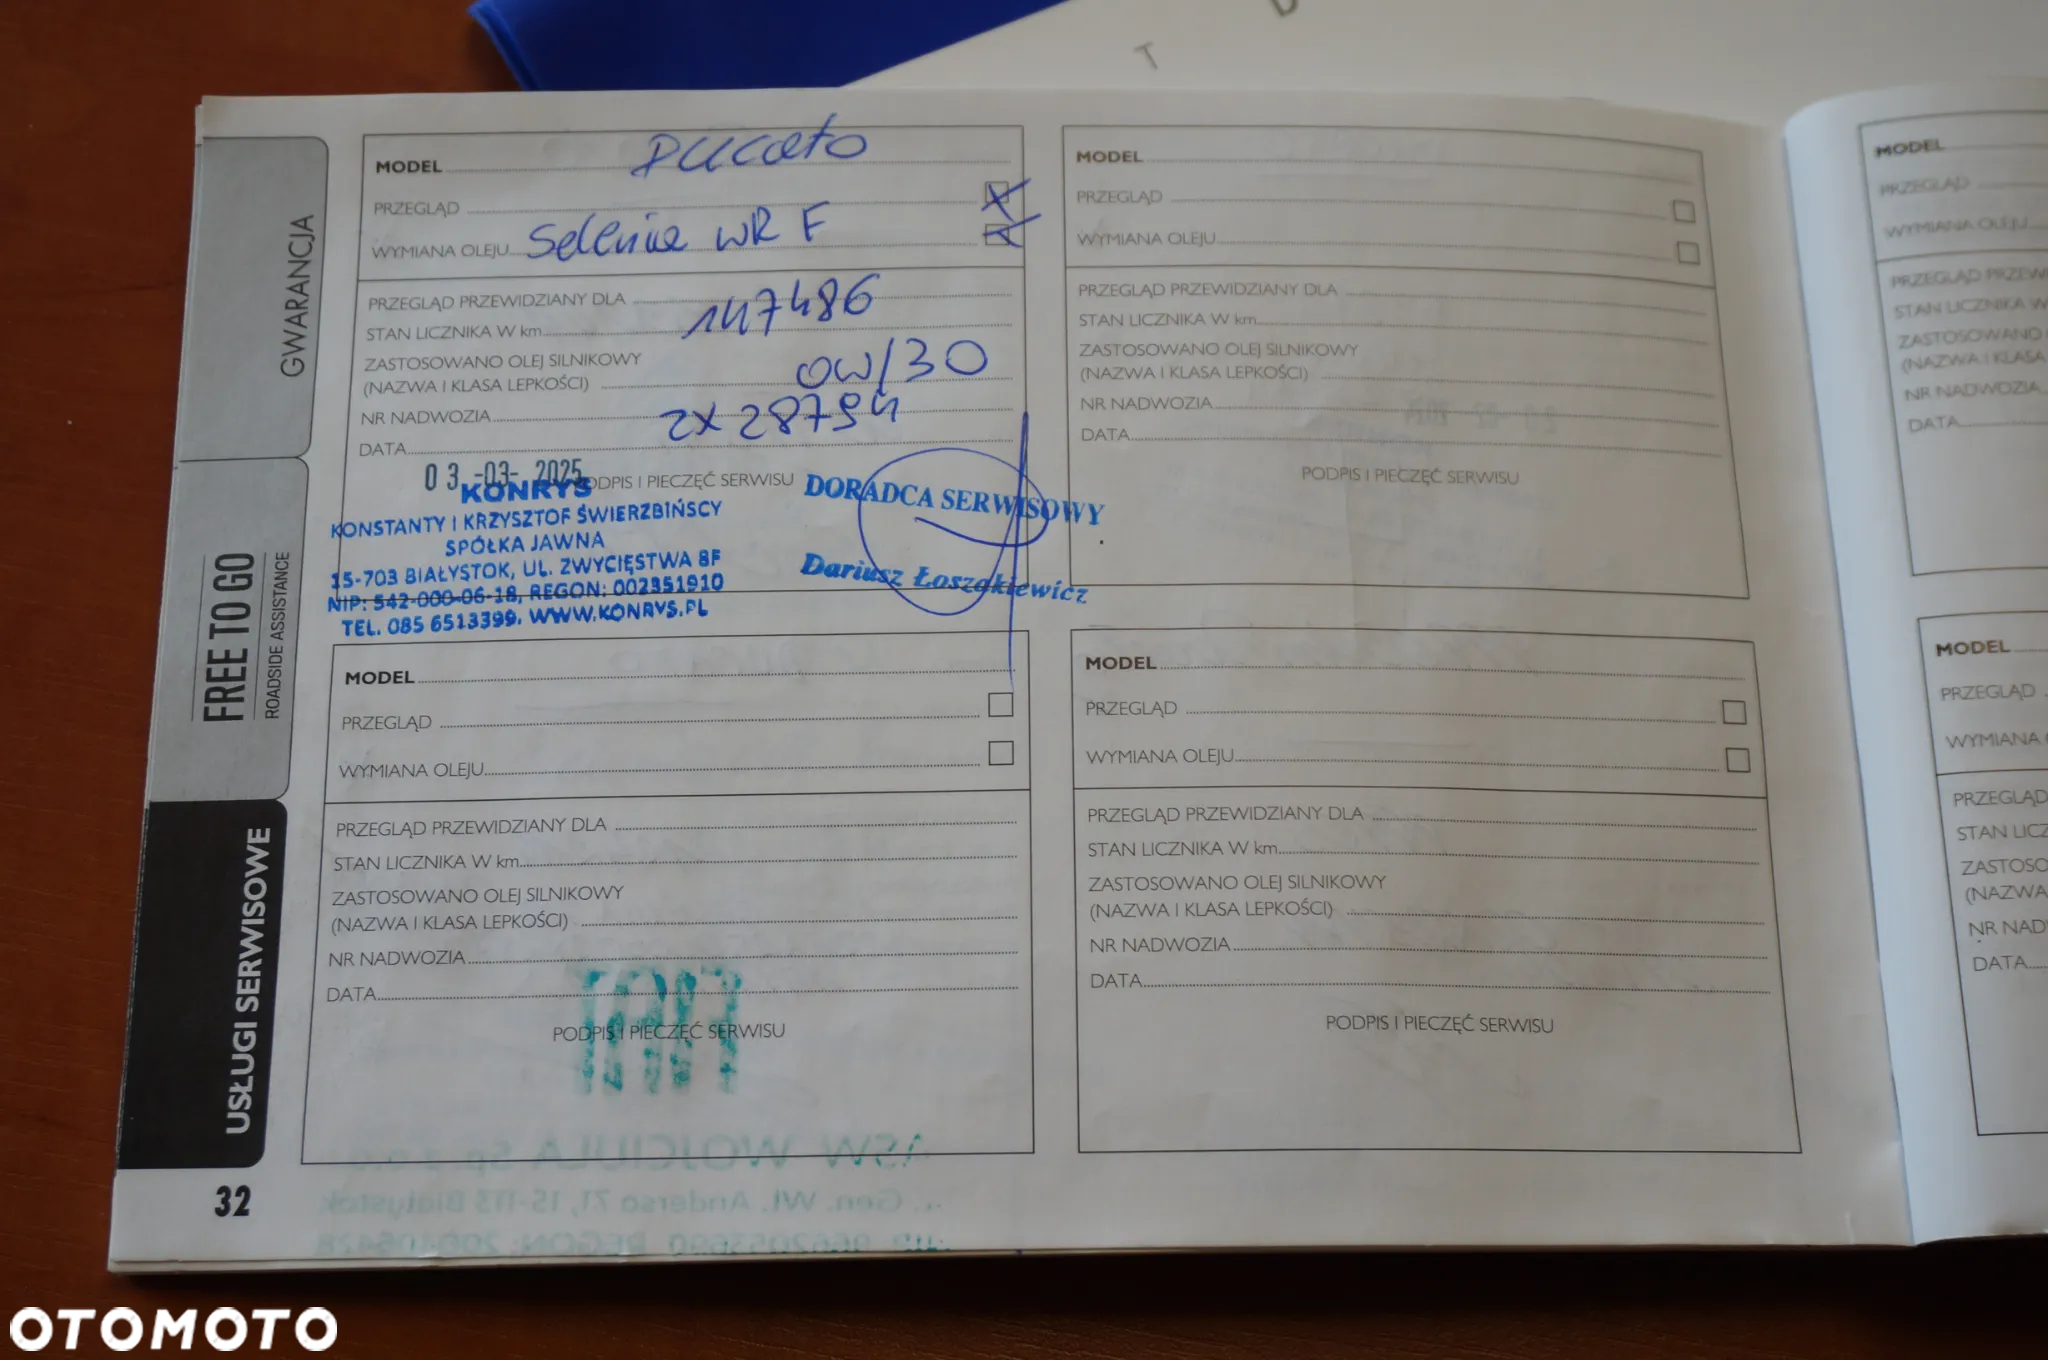 D
T
GWARANCJA
FREE TO GO
ROADSIDE ASSISTANCE
USŁUGI SERWISOWE
32
MODEL Ducato
PRZEGLĄD
WYMIANA OLEJU Selenia WR F
PRZEGLĄD PRZEWIDZIANY DLA
STAN LICZNIKA W km 147486
ZASTOSOWANO OLEJ SILNIKOWY
(NAZWA I KLASA LEPKOŚCI) 0W/30
NR NADWOZIA 2X28794
DATA
03-03-2025
PODPIS I PIECZĘĆ SERWISU
KONRYS
KONSTANTY I KRZYSZTOF ŚWIERZBIŃSCY
SPÓŁKA JAWNA
15-703 BIAŁYSTOK, UL. ZWYCIĘSTWA 8F
NIP: 542-000-06-18, REGON: 002351910
TEL. 085 6513399. WWW.KONRYS.PL
DORADCA SERWISOWY
Dariusz Łoszakiewicz
MODEL
PRZEGLĄD
WYMIANA OLEJU
PRZEGLĄD PRZEWIDZIANY DLA
STAN LICZNIKA W km
ZASTOSOWANO OLEJ SILNIKOWY
(NAZWA I KLASA LEPKOŚCI)
NR NADWOZIA
DATA
PODPIS I PIECZĘĆ SERWISU
MODEL
PRZEGLĄD
WYMIANA OLEJU
PRZEGLĄD PRZEWIDZIANY DLA
STAN LICZNIKA W km
ZASTOSOWANO OLEJ SILNIKOWY
(NAZWA I KLASA LEPKOŚCI)
NR NADWOZIA
DATA
PODPIS I PIECZĘĆ SERWISU
FIAT
ASW WOJCIULA Sp. z o.o.
Gen. Wł. Andersa 71, 15-113 Białystok
MODEL
PRZEGLĄD
WYMIANA OLEJU
PRZEGLĄD PRZEWIDZIANY DLA
STAN LICZNIKA W km
ZASTOSOWANO OLEJ SILNIKOWY
(NAZWA I KLASA LEPKOŚCI)
NR NADWOZIA
DATA
PODPIS I PIECZĘĆ SERWISU
MODEL
PRZEGLĄD
WYMIANA OLEJU
PRZEGLĄD PRZEW
STAN LICZNIKA W
ZASTOSOWANO
(NAZWA I KLASA
NR NADWOZIA
DATA
MODEL
PRZEGLĄD
WYMIANA
PRZEGLĄD
STAN LICZ
ZASTOSO
(NAZWA
NR NAD
DATA
OTOMOTO